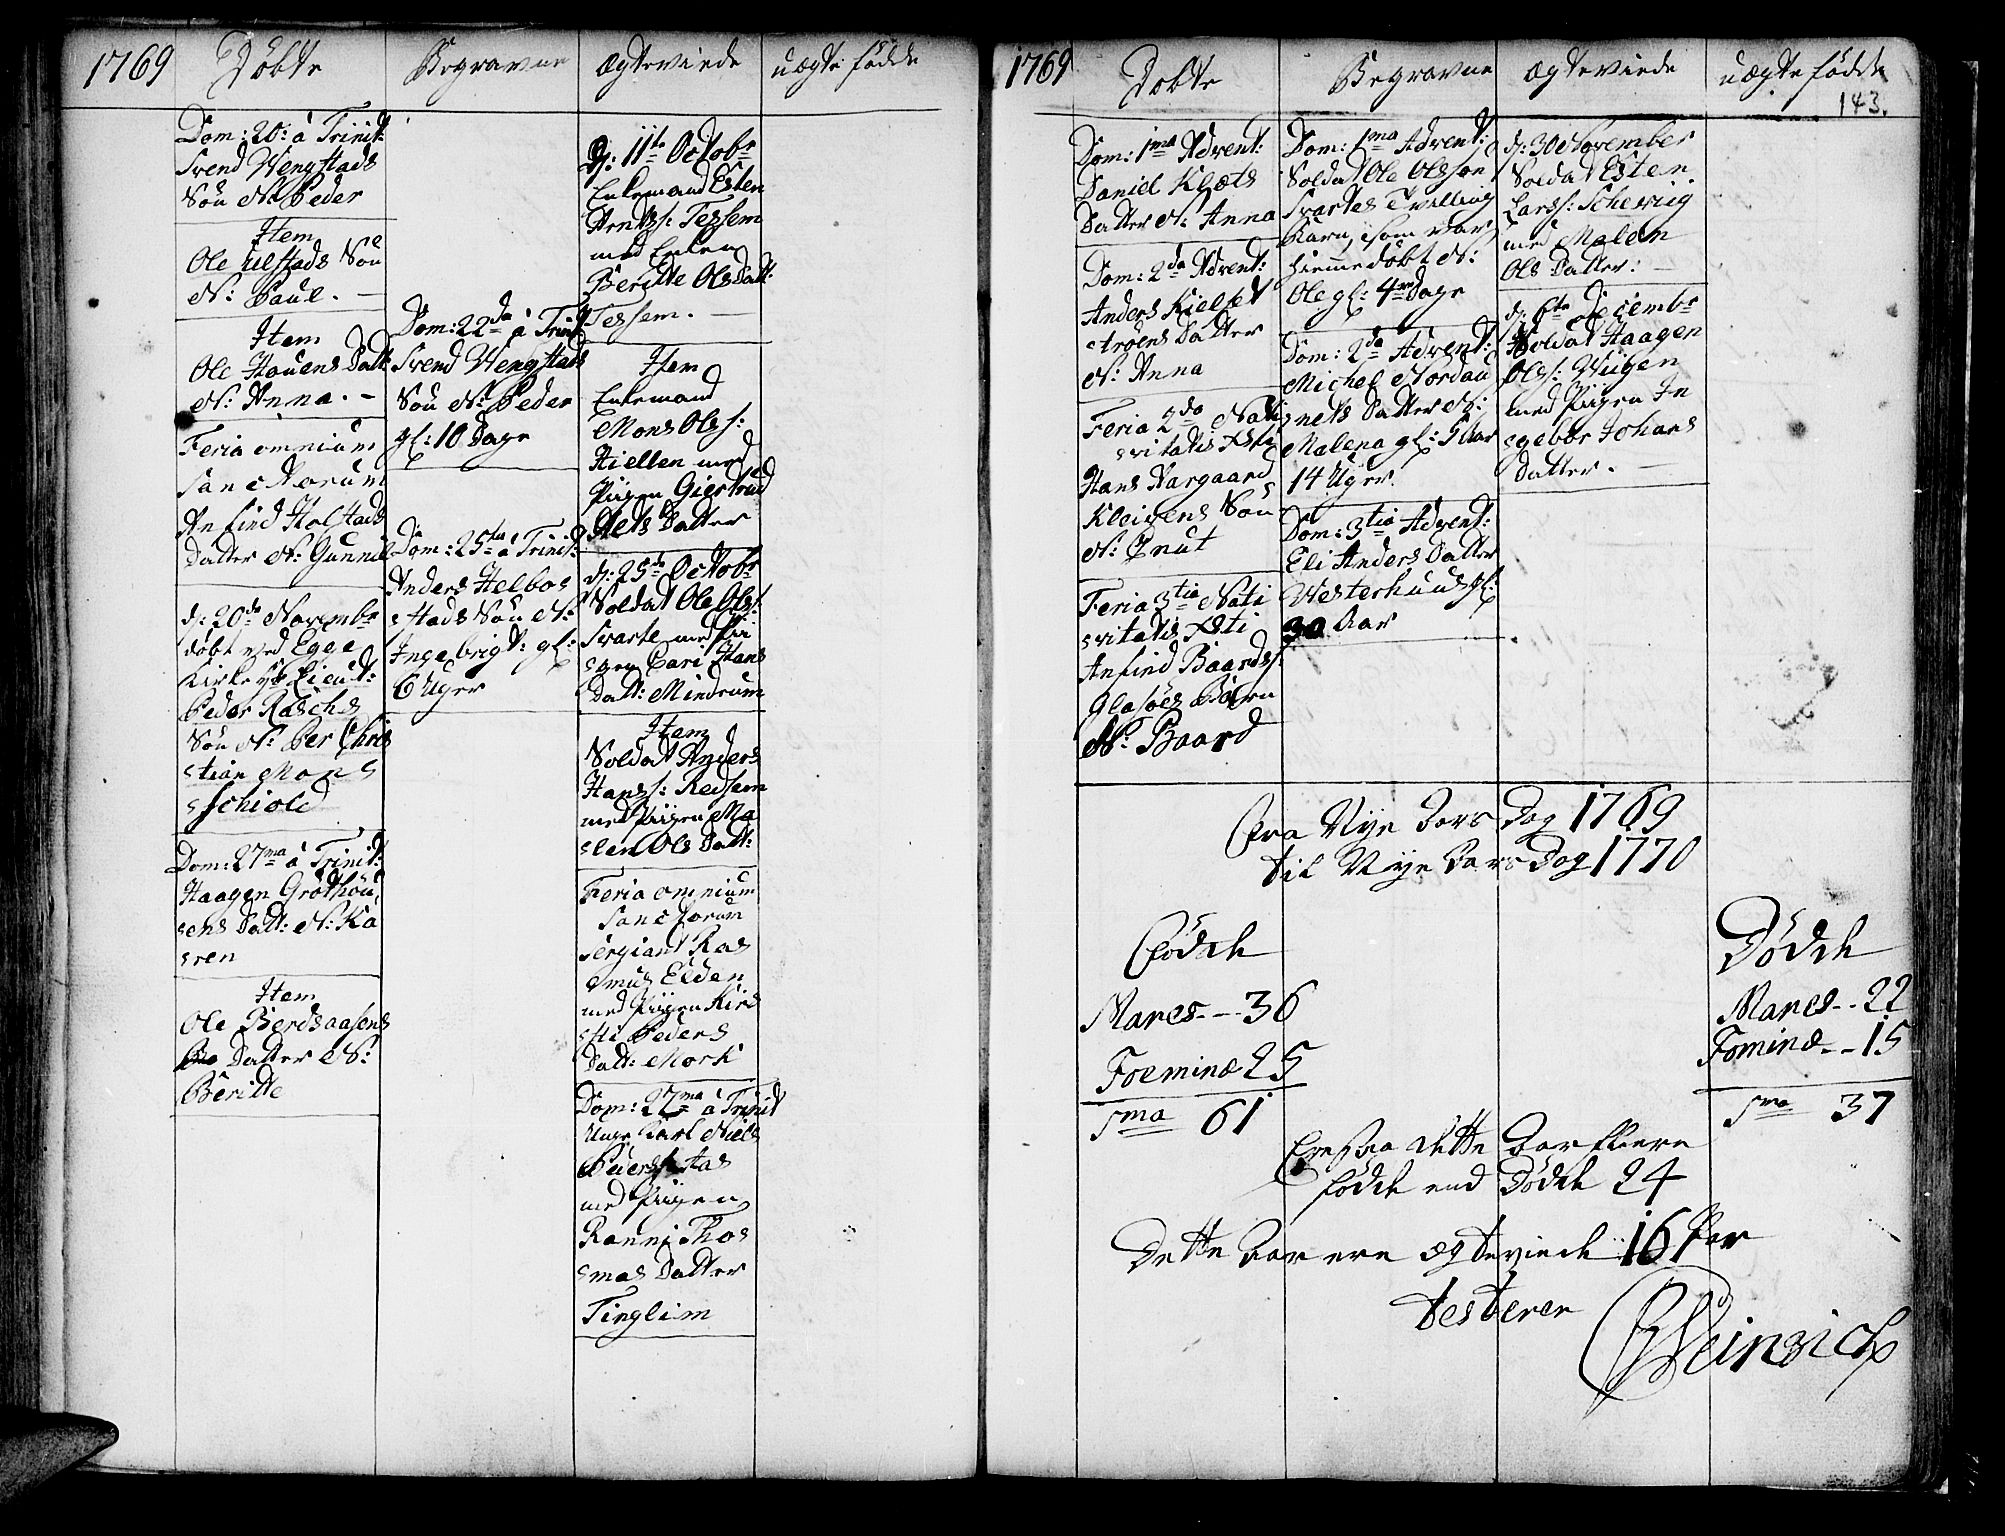 1769 Döbte Begravne Ægteviede uægte födde
Dom: 20: á Trinit:
Svend Wengstads
Sön N: Peder
Item
Ole Ulstads Sön
N: Paul. —
Item
Ole Hauens Datt:
N: Anna. –
Feria omnium
sanctorum
Anfind Holstads
Datter N: Gunnil
d: 20de Novembr
döbt ved Egge
Kirke Hr Lieut:
Peder Raschs
Sön N: Per Chris
stian Mons
schiold
Dom: 27ma á Trinit:
Haagen Gröthou
sens Datt: N: Ka
ren
Item
Ole Berdsaasens
Datter N:
Beritte
Dom: 22da á Trinit:
Svend Wengstads
Sön N: Peder
gl: 10 Dage
Dom: 25ta á Trinit:
Anders Helbos
stads Sön N:
Ingebrigt: gl:
6 Uger
D: 11te Octobr
Enkemand Esten
Arntss: Tessem
med Enken
Beritte Olsdatt:
Tessem. —
Item
Enkemand
Mons Olss:
Hiellen med
Piigen Giertrud
Nets Datter
d: 25de Octobr
Soldat Ole Olss:
Svarte med Pii
gen Cari Hans
Datt: Mindrum
Item
Soldat Anders
Hanss: Redsem
med Piigen Ma
len Ols Datt:
Feria omnium
sanctorum
Sergiant Ras
mus Elden
med Piigen Kirs
sti Peders
Datt: Mork
Dom: 27ma á Trinit
Unge Karl Niels
med Piigen
Ranni Tho
mas Datter
Tinglim
1769 Döbte Begravne Ægteviede uægte födde
143.
Dom: 1ma Advent:
Daniel Kloets
Datter N: Anna
Dom: 2da Advent:
Anders Kielset
stroens Datter
N: Anna
Feria 2da Nati
vitatis Xsti
Hans Aargaard
Kleivens Sön
N: Cnut
Feria 3tia Nati
vitatis Xsti
Anfind Baardss:
Glasöes Barn
N: Baard
Dom: 1ma Advent:
Soldat Ole Olsson
Svartes Tvilling
Barn, som var
hiemmedöbt N:
Ole gl: 4re Dage
Dom: 2da Advent:
Michel Nordau
nets Datter N:
Malena gl: 5 Aar
14 Uger.
Dom: 3tia Advent:
Eli Anders Datter
Westerhuus gl:
30 Aar
d: 30 November
Soldat Esten
Larss: Scherviig
med Malen
Ols Datter: —
d: 6te Decembr
Soldat Haagen
Olss: Wiigen
med Piigen In
gebor Johans
Datter. —
Fra Nye Aars Dag 1769
til Nye Aars Dag 1770
Födde
Mares - - 36
Foeminæ 25
Sma 61
Dödde
Mares - - 22
Fominæ - - 15
Sma 37
Ere saa dette Aar fleere
födde end Dödde 24
Dette Aar ere ægteviede 16 Par
testerer
Weinzich